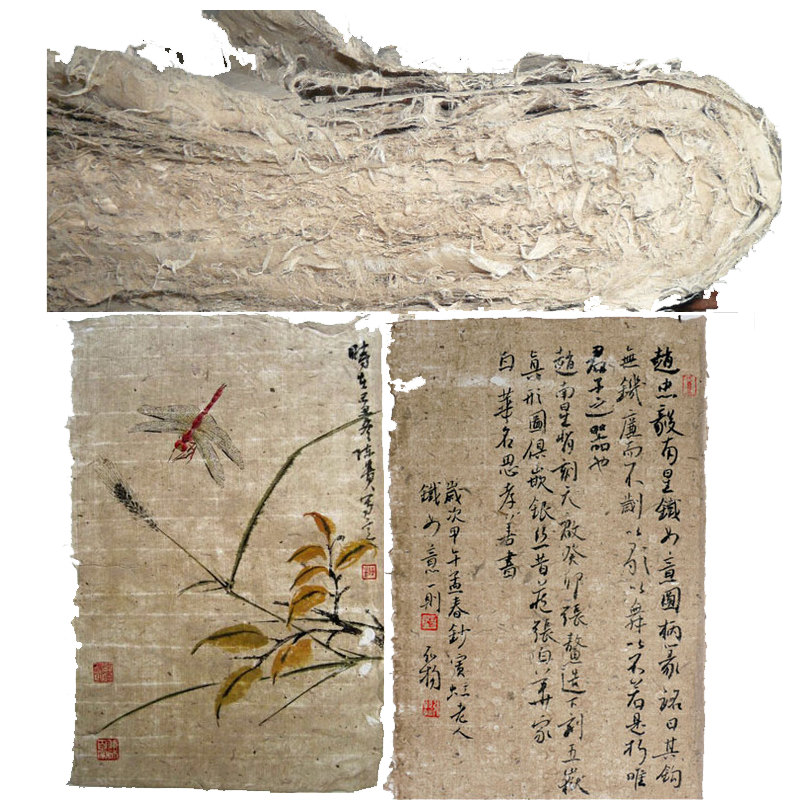 時在乙未冬陳貴写意
趙忠毅南星鐵如意圖柄篆銘曰其鈎
無鐖廉而不劌以歌以舞以不若是折唯
君子之器也
趙南星背刻天啟癸卯張鰲造下刻五嶽
真形圖俱嵌銀絲昔藏張白華家
白華名思孝善書
歲次甲午孟春鈔賓虹老人
鐵如意一則